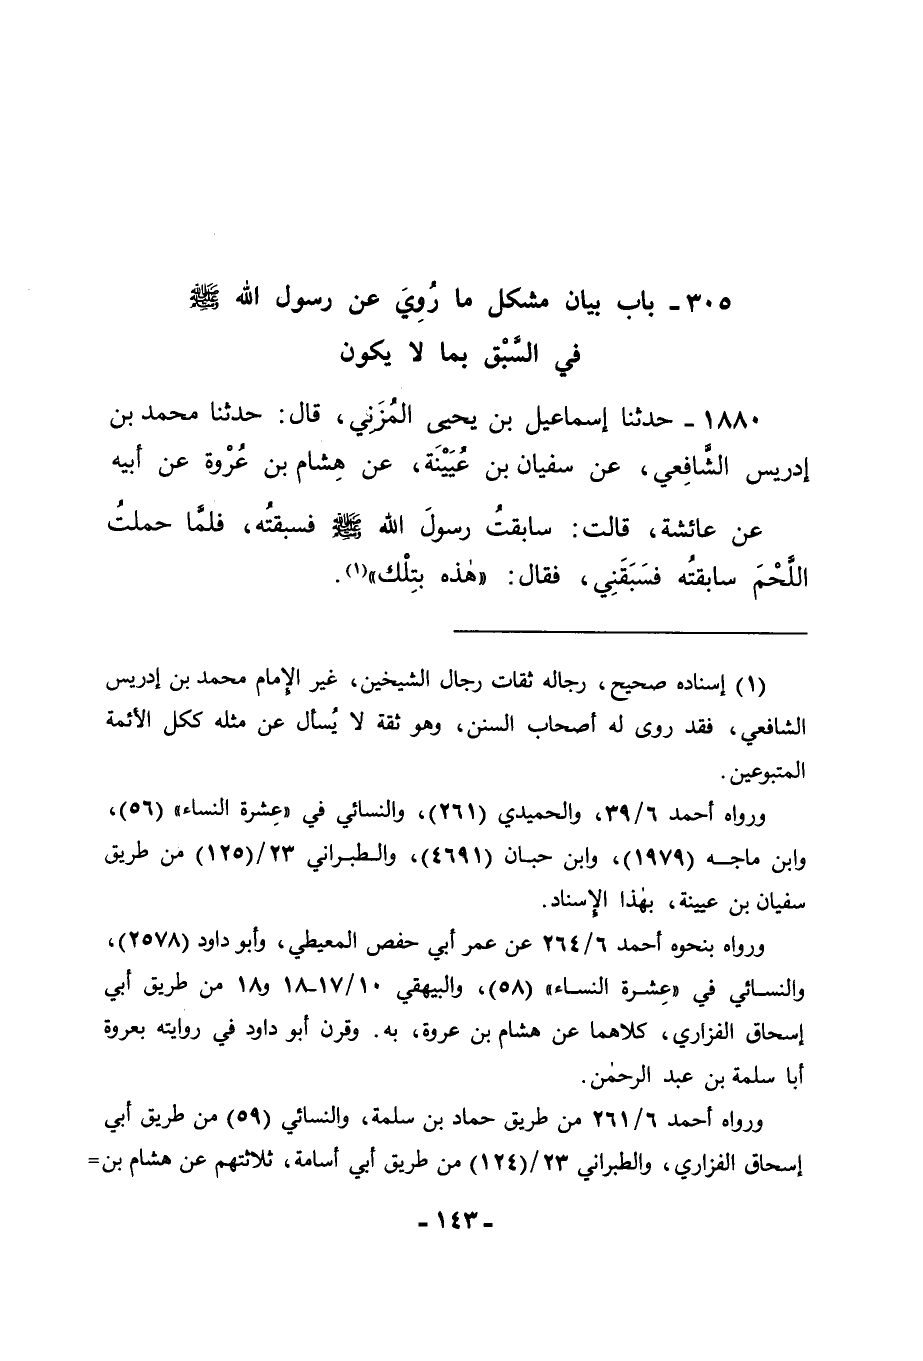 ٣٠٥ـ باب بيان مشكل ما رُوِيَ عن رسول الله ﷺ
في السَّبْق بما لا يكون
١٨٨٠ ـ حدثنا إسماعيل بن يحيى المُزَنِي، قال: حدثنا محمد بن
إدريس الشَّافِعي، عن سفيان بن عُيَيْنَة، عن هِشام بن عُرْوة عن أبيه
عن عائشة، قالت: سابقتُ رسولَ الله ﷺ فسبقتُه، فلمَّا حملتُ
اللَّحْمَ سابقتُه فسَبَقَنِي، فقال: «هٰذه بِتِلْك»(١).
(١) إسناده صحيح، رجاله ثقات رجال الشيخين، غير الإمام محمد بن إدريس
الشافعي، فقد روى له أصحاب السنن، وهو ثقة لا يُسأل عن مثله ككل الأئمة
المتبوعين.
ورواه أحمد ٣٩/٦، والحميدي (٢٦١)، والنسائي في «عِشرة النساء» (٥٦)،
وابن ماجـه (١٩٧٩)، وابن حبـان (٤٦٩١)، والـطبـراني ٢٣/(١٢٥) من طريق
سفيان بن عيينة، بهٰذا الإسناد.
ورواه بنحوه أحمد ٢٦٤/٦ عن عمر أبي حفص المعيطي، وأبو داود (٢٥٧٨)،
والنسـائي في «عِشـرة النسـاء» (٥٨)، والبيهقي ١٧/١٠ـ١٨ و١٨ من طريق أبي
إسحاق الفزاري، كلاهما عن هشام بن عروة، به. وقرن أبو داود في روايته بعروة
أبا سلمة بن عبد الرحمٰن.
ورواه أحمد ٢٦١/٦ من طريق حماد بن سلمة، والنسائي (٥٩) من طريق أبي
إسحاق الفزاري، والطبراني ٢٣/(١٢٤) من طريق أبي أسامة، ثلاثتهم عن هشام بن=
ـ ١٤٣ ـ